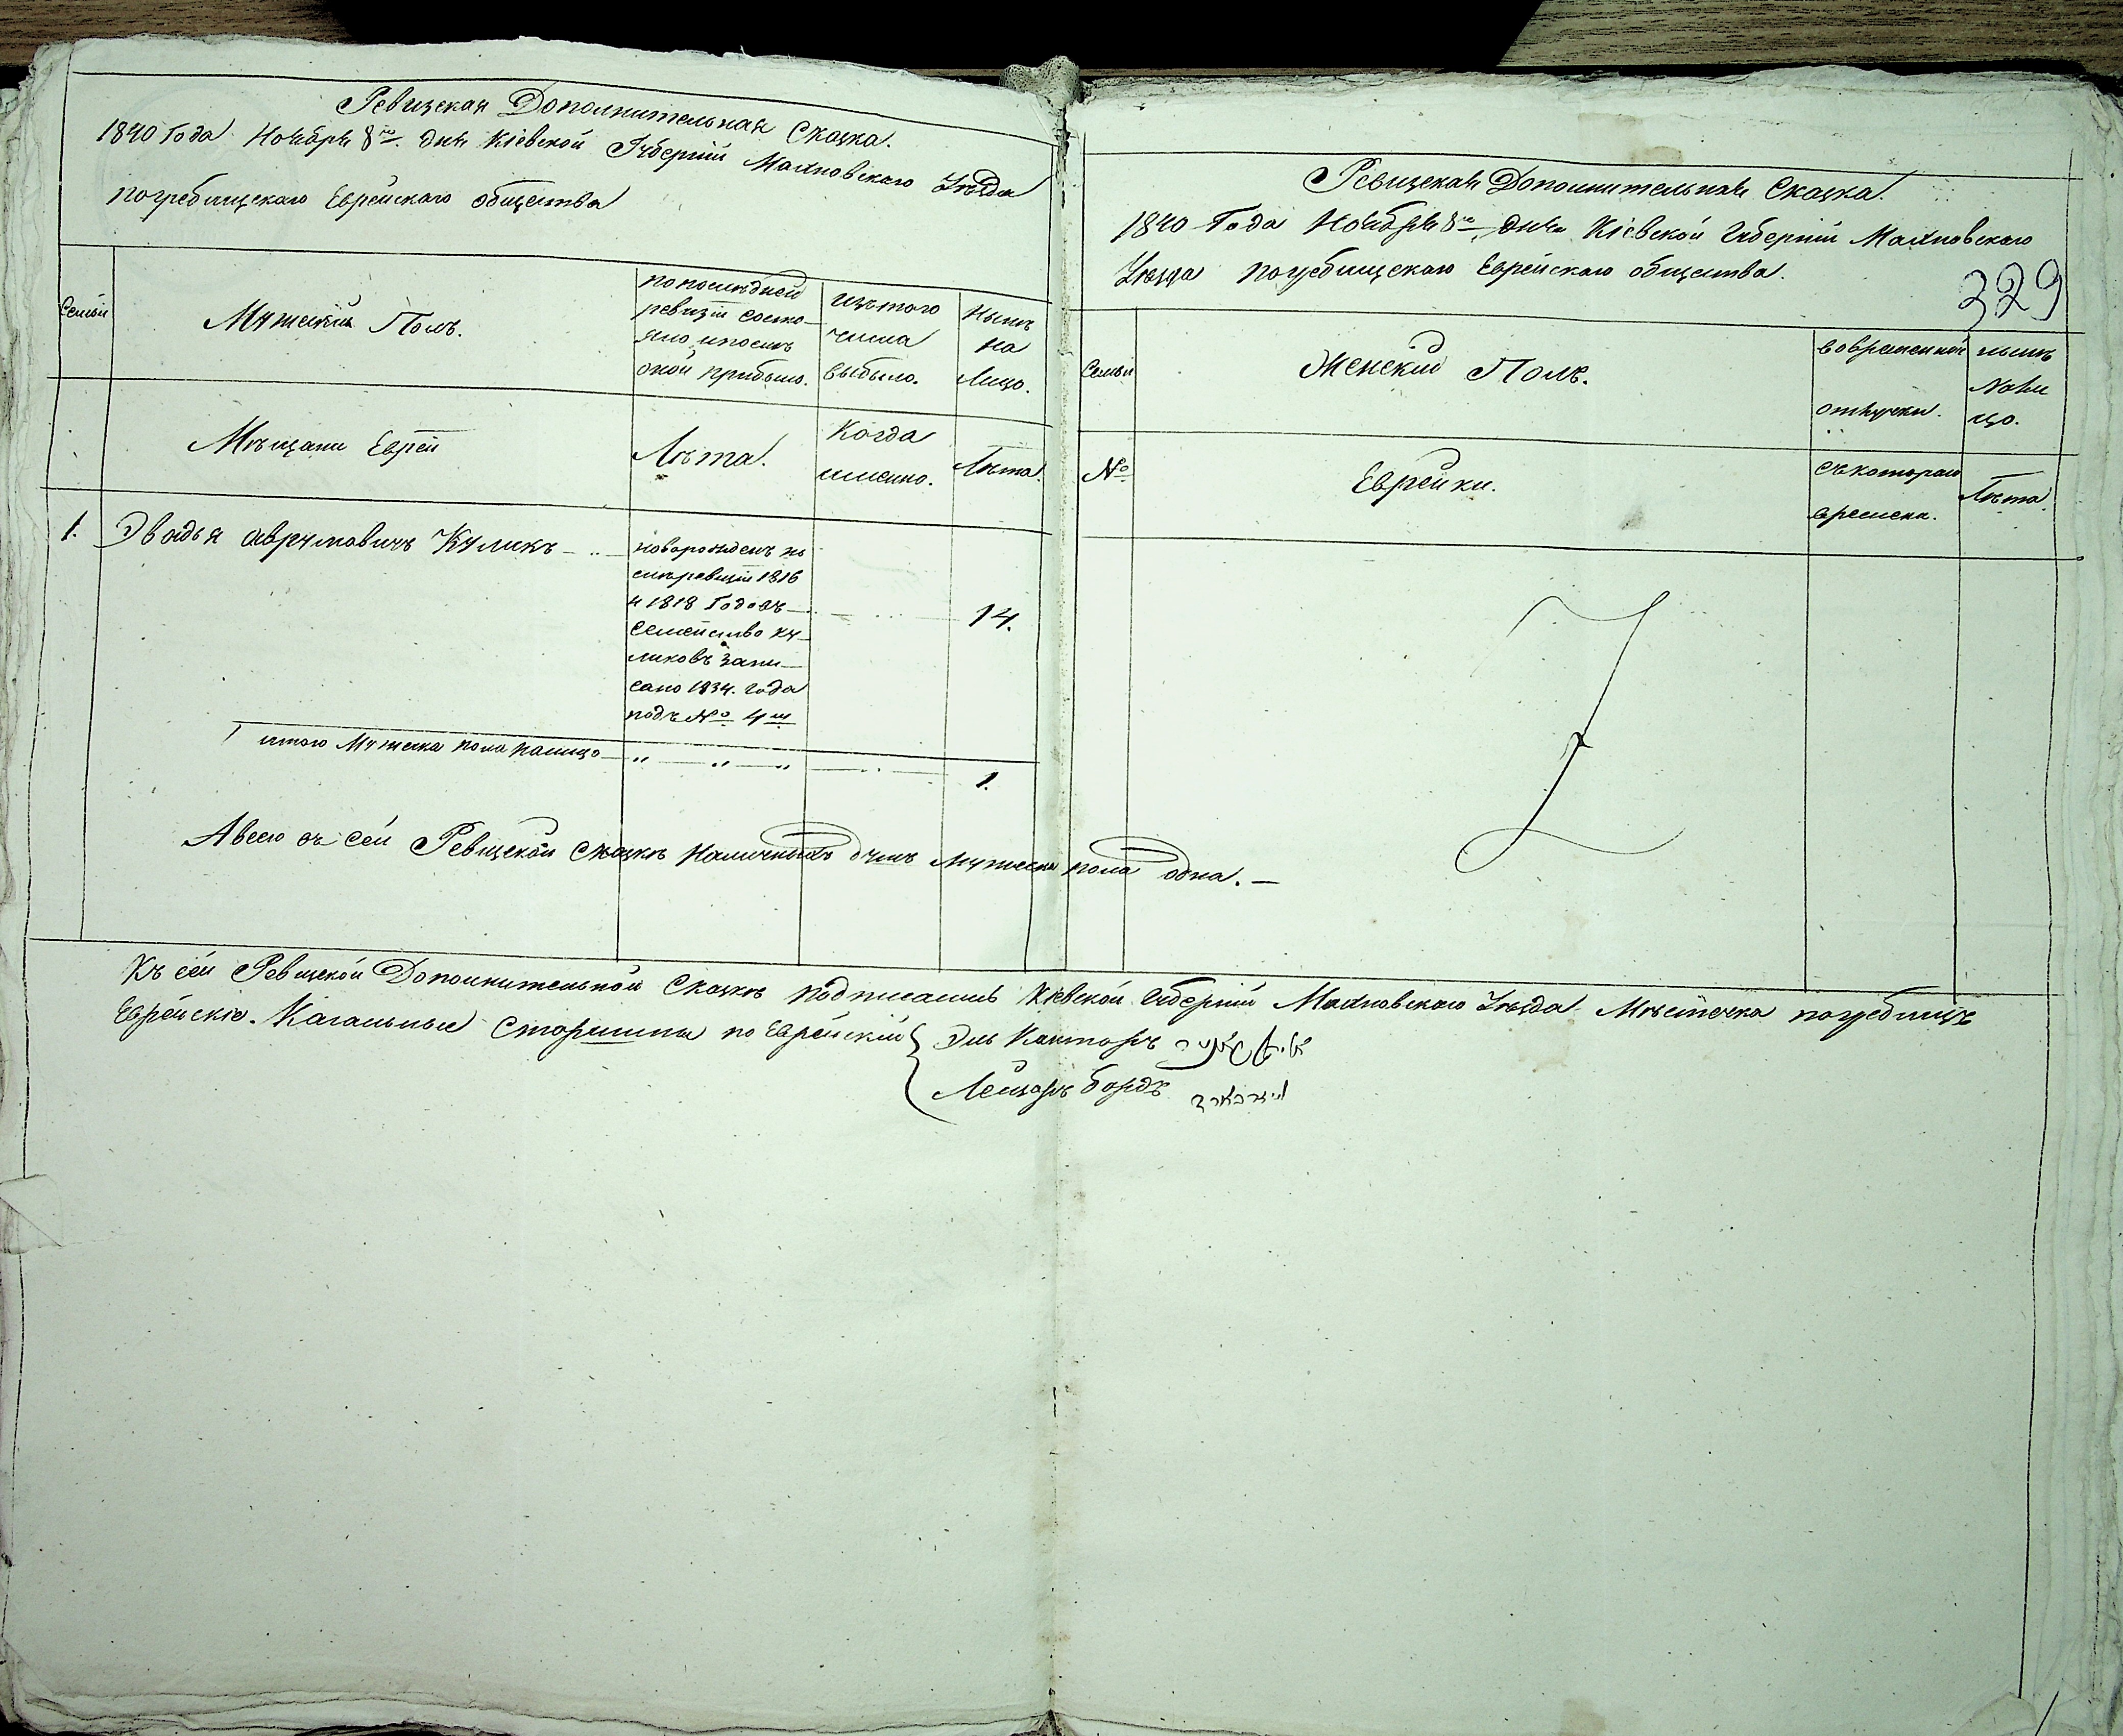 Ревизская Дополнительная Сказка.
1840 Года Ноября 8го дня Кіевской Губерніи Махновскаго Уѣзда
погребищскаго Еврейскаго общества
Семьи
Мужескій Полъ.
по послѣдней
ревизіи состо-
яло и послѣ
оной прибыло.
изъ того
числа
выбыло.
Нынѣ
на
лицо.
Мѣщани Евреи
Лѣта.
Когда
имѣнно.
Лѣта.
1.
Аврумовичъ Куликъ
новорожденъ по
слѣ ревизіи 1816
и 1818 Годовъ
Семейство Ку-
ликовъ Запи-
сано 1834. года
подъ №
14.
итого Мужеска пола налицо
1.
А всего въ сей Ревизской Сказкѣ Наличныхъ душъ мужеска пола одна.
Ревизская Дополнительная Сказка.
1840 Года Ноября 8го дня Кіевской Губерніи Махновскаго
Уѣзда погребищскаго Еврейскаго общества.
329
Семьи
Женскій Полъ.
во временной
отлучки.
нынѣ
нали
цо.
№
Еврейки.
съ котораго
времени.
Лѣта.
Къ сей Ревизской Дополнительной Сказкѣ подписались Кіевской Губерніи Махновскаго Уѣзда Мѣстечка погребищъ
Еврейскіе Кагальные Старшины по Еврейскій
Эль Канторъ
Лейзоръ бордъ